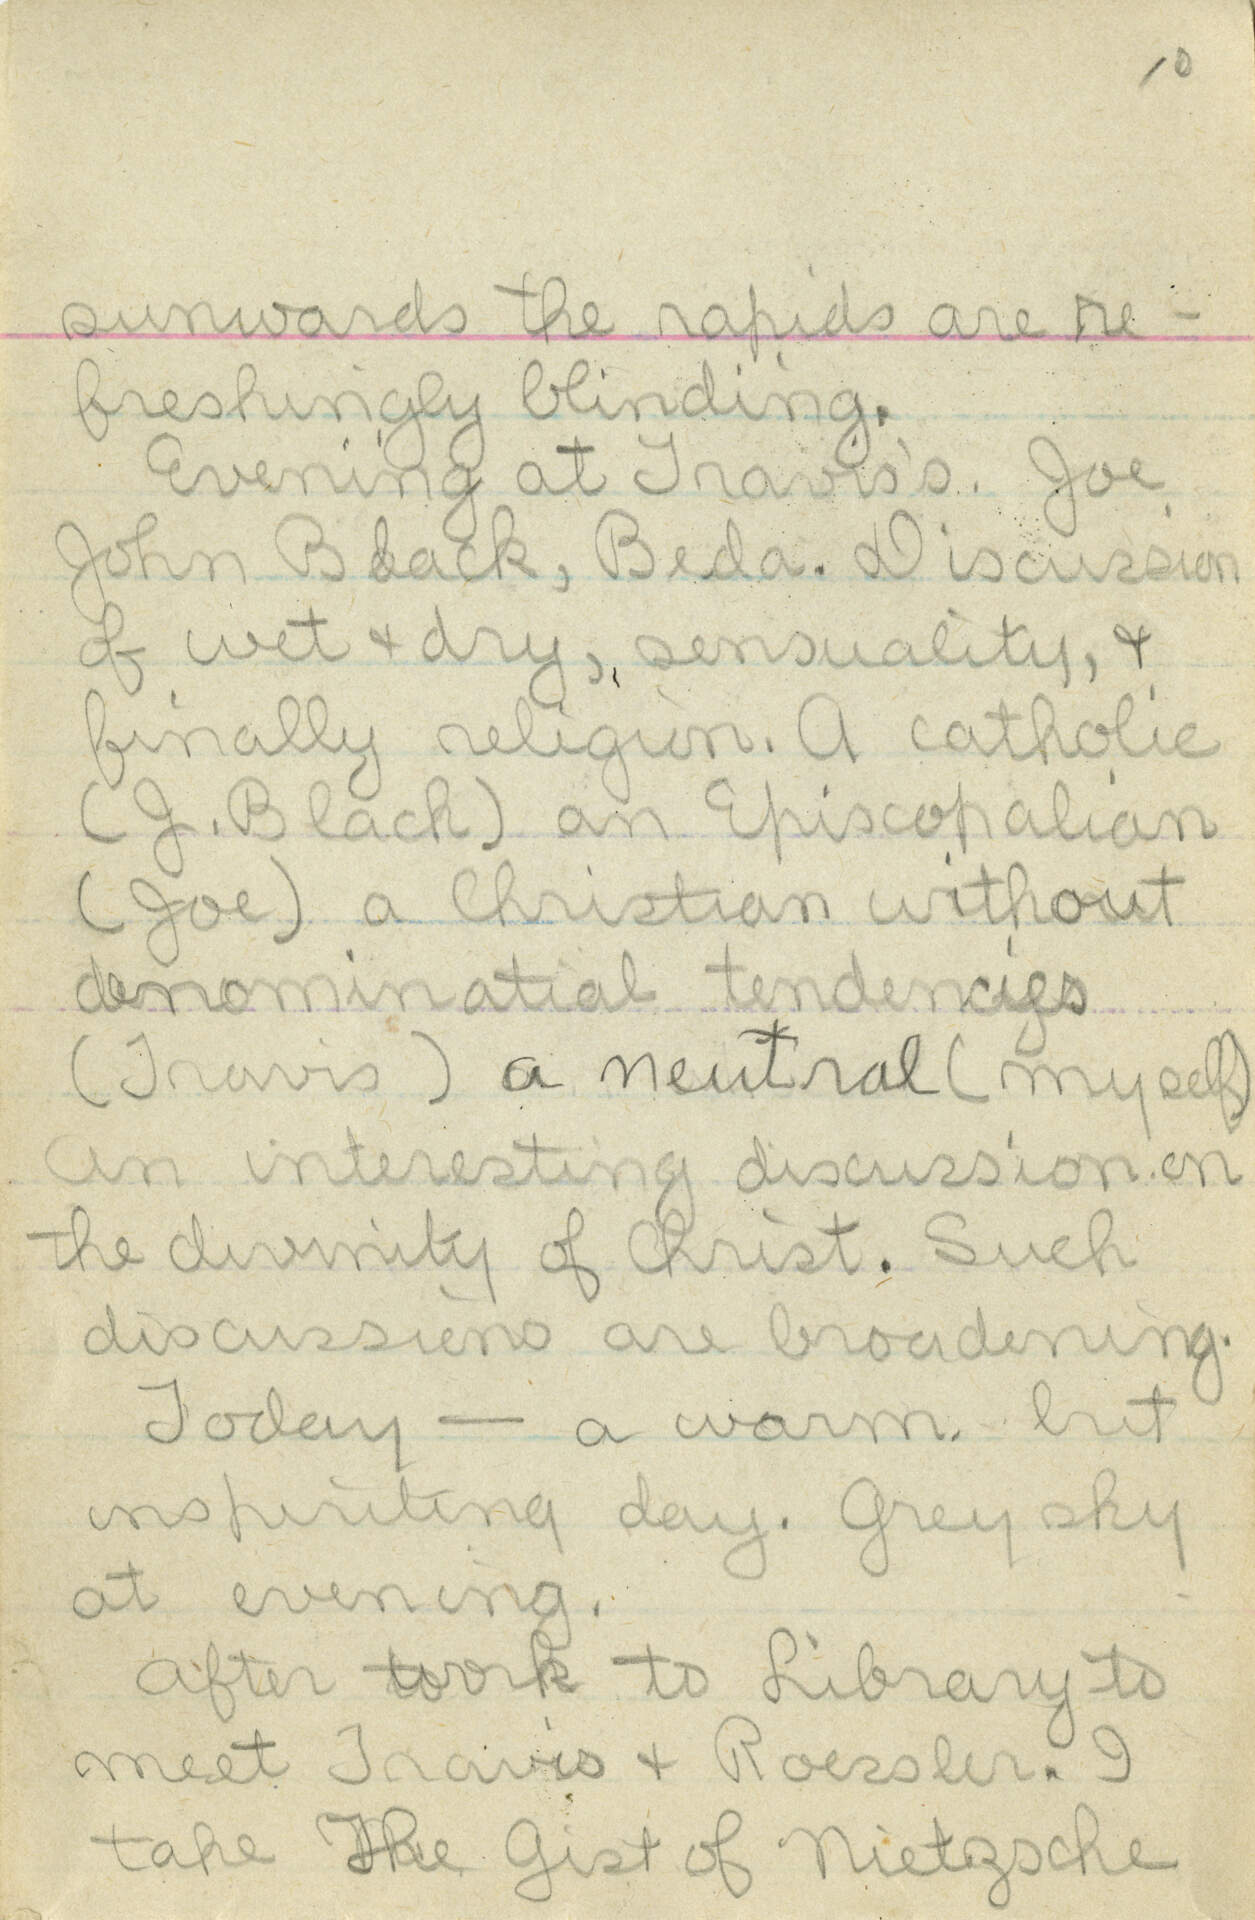 10
sunwards the rapids are re-
freshingly blinding.
Evening at Travis's. Joe
John Black, Beda. Discussion
of wet & dry, sensuality, &
finally religion. A catholic
(J. Black) an Episcopalian
(Joe) a Christian without
denominatial tendencies
(Travis) a neutral (myself)
An interesting discussion on
the divinity of Christ. Such
discussions are broadening.
Today — a warm but
inspiriting day. Grey sky
at evening.
After work to Library to
meet Travis & Roessler. I
take The Gist of Nietzsche